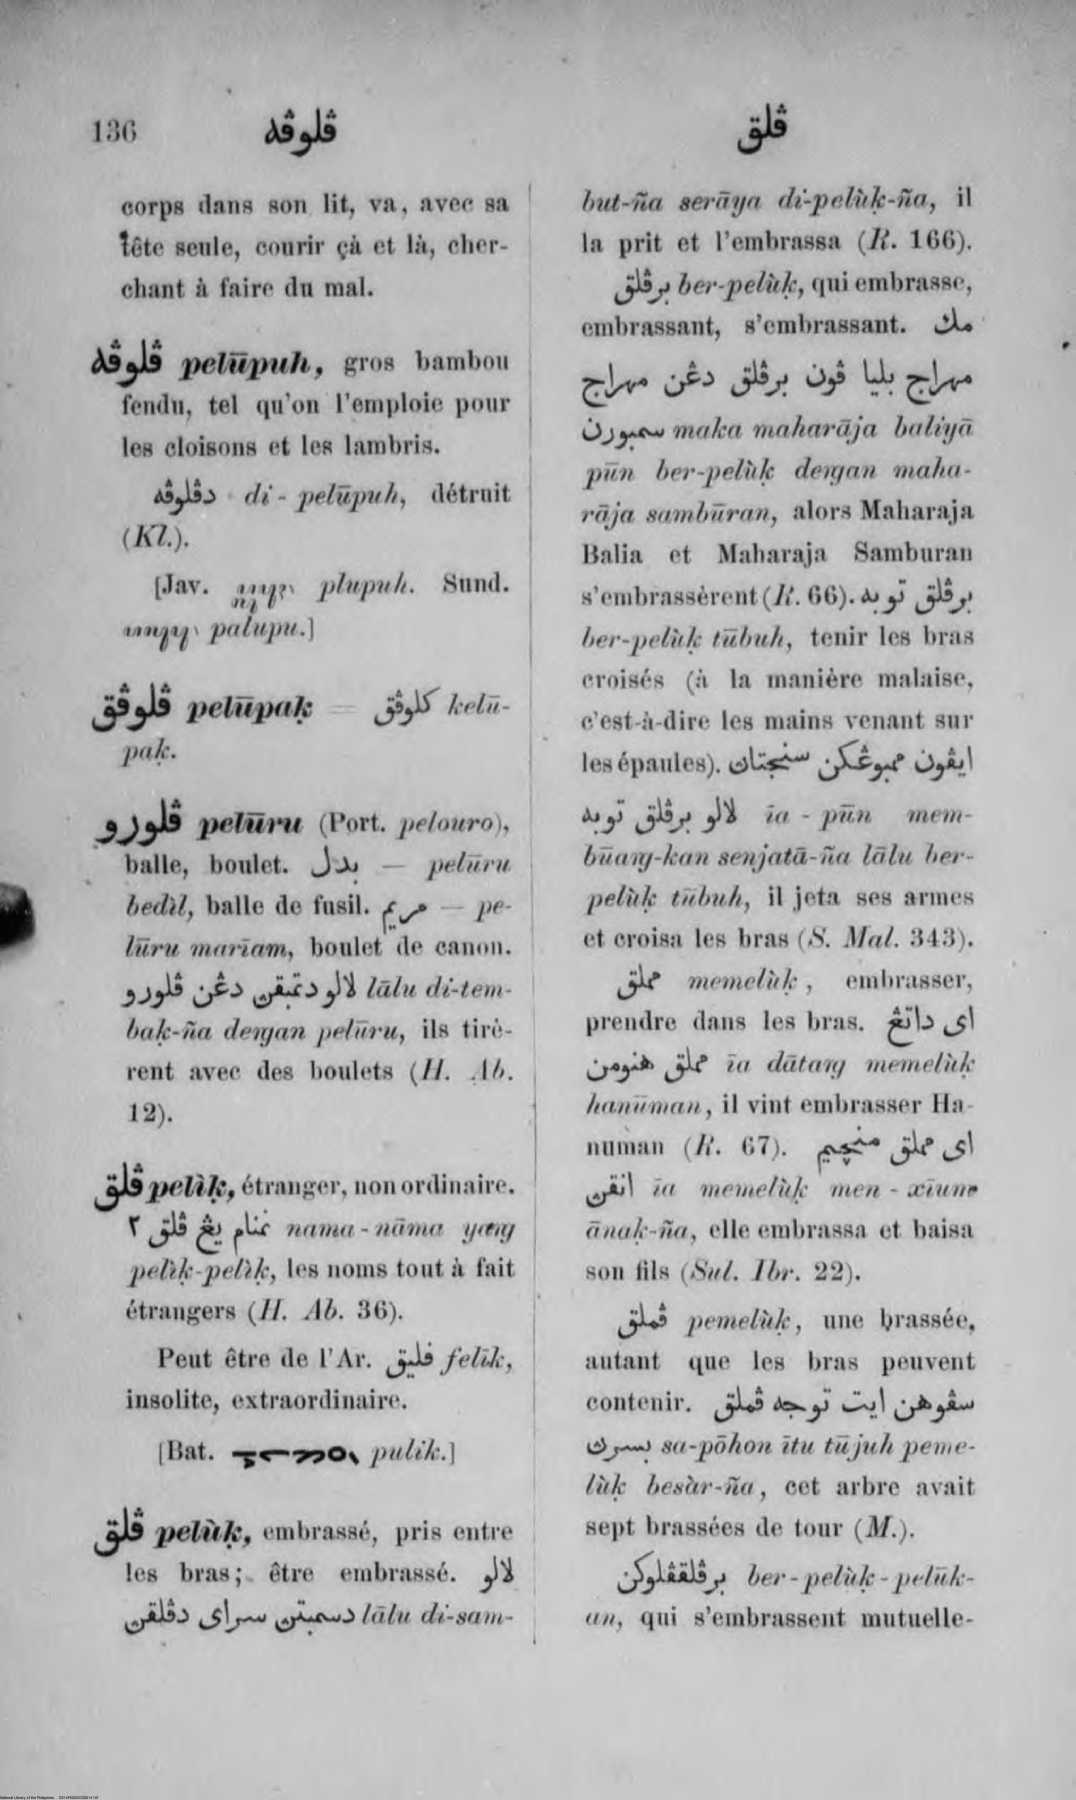 136 ڤلوڤه ڤلق
corps dans son lit, va, avec sa
tête seule, courir çà et là, cher-
chant à faire du mal.
ڤلوڤه pelūpuh, gros bambou
fendu, tel qu'on l'emploie pour
les cloisons et les lambris.
دڤلوڤه di-pelūpuh, détruit
(Kl.).
[Jav. plupuh. Sund.
palupu.]
ڤلوڤق pelūpaḳ = كلوڤق kelū-
paḳ.
ڤلورو pelūru (Port. pelouro),
balle, boulet. بدل — pelūru
bedìl, balle de fusil. مريم — pe-
lūru marīam, boulet de canon.
لالو دتمبقن دڠن ڤلورو lālu di-tem-
baḳ-ña deṅgan pelūru, ils tirè-
rent avec des boulets (H. Ab.
12).
ڤلق pelìḳ, étranger, non ordinaire.
نمنام يڠ ڤلق ٢ nama-nāma yaṅg
pelìḳ-pelìḳ, les noms tout à fait
étrangers (H. Ab. 36).
Peut être de l'Ar. فليق felīk,
insolite, extraordinaire.
[Bat. pulik.]
ڤلق pelùḳ, embrassé, pris entre
les bras; être embrassé. لالو
دسمبتن سراى دڤلقن lālu di-sam-
but-ña serāya di-pelùḳ-ña, il
la prit et l'embrassa (R. 166).
برڤلق ber-pelùḳ, qui embrasse,
embrassant, s'embrassant. مك
مهراج بليا ڤون برڤلق دڠن مهراج
سمبورن maka maharāja baliyā
pūn ber-pelùḳ deṅgan maha-
rāja sambūran, alors Maharaja
Balia et Maharaja Samburan
s'embrassèrent (R. 66). برڤلق توبه
ber-pelùḳ tūbuh, tenir les bras
croisés (à la manière malaise,
c'est-à-dire les mains venant sur
les épaules). ايڤون ممبوڠكن سنجتان
لالو برڤلق توبه īa-pūn mem-
būaṅg-kan senjatā-ña lālu ber-
pelùḳ tūbuh, il jeta ses armes
et croisa les bras (S. Mal. 343).
مملق memelùḳ, embrasser,
prendre dans les bras. اى داتڠ
مملق هنومن īa dātaṅg memelùḳ
hanūman, il vint embrasser Ha-
numan (R. 67). اى مملق منچيم
انقن īa memelùḳ men-xīum
ānaḳ-ña, elle embrassa et baisa
son fils (Sul. Ibr. 22).
ڤملق pemelùḳ, une brassée,
autant que les bras peuvent
contenir. سڤوهن ايت توجه ڤملق
بسرن sa-pōhon ītu tūjuh peme-
lùḳ besàr-ña, cet arbre avait
sept brassées de tour (M.).
برڤلقڤلوكن ber-pelùḳ-pelūk-
an, qui s'embrassent mutuelle-